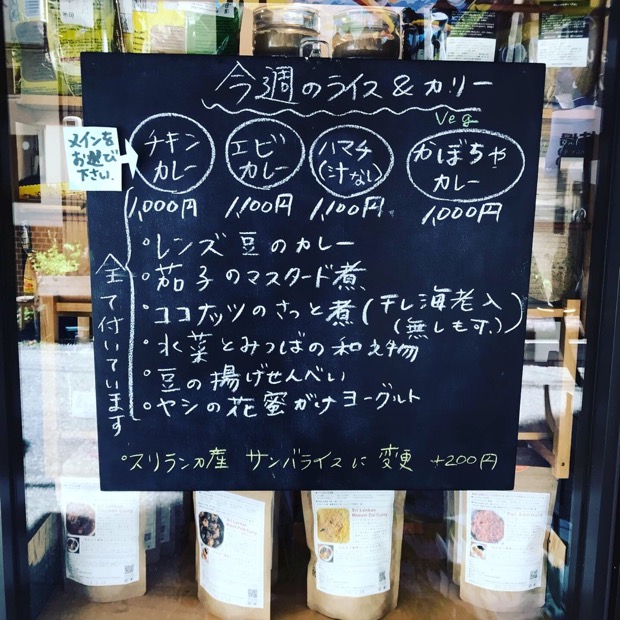 今週のライス&カリー
Veg
メインを
お選び
下さい。
チキン
カレー
エビ
カレー
ハマチ
(汁なし)
かぼちゃ
カレー
1,000円 1,100円 1,100円 1,000円
全て付いています
・レンズ豆のカレー
・茄子のマスタード煮
・ココナッツのさっと煮(干し海老入)
(無しも可。)
・水菜とみつばの和え物
・豆の揚げせんべい
・ヤシの花蜜がけヨーグルト
・スリランカ産 サンバライスに変更 +200円
Sri Lankan